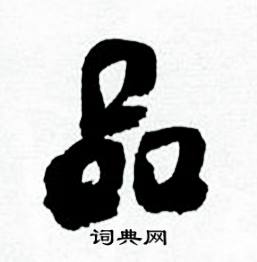 品
词典网